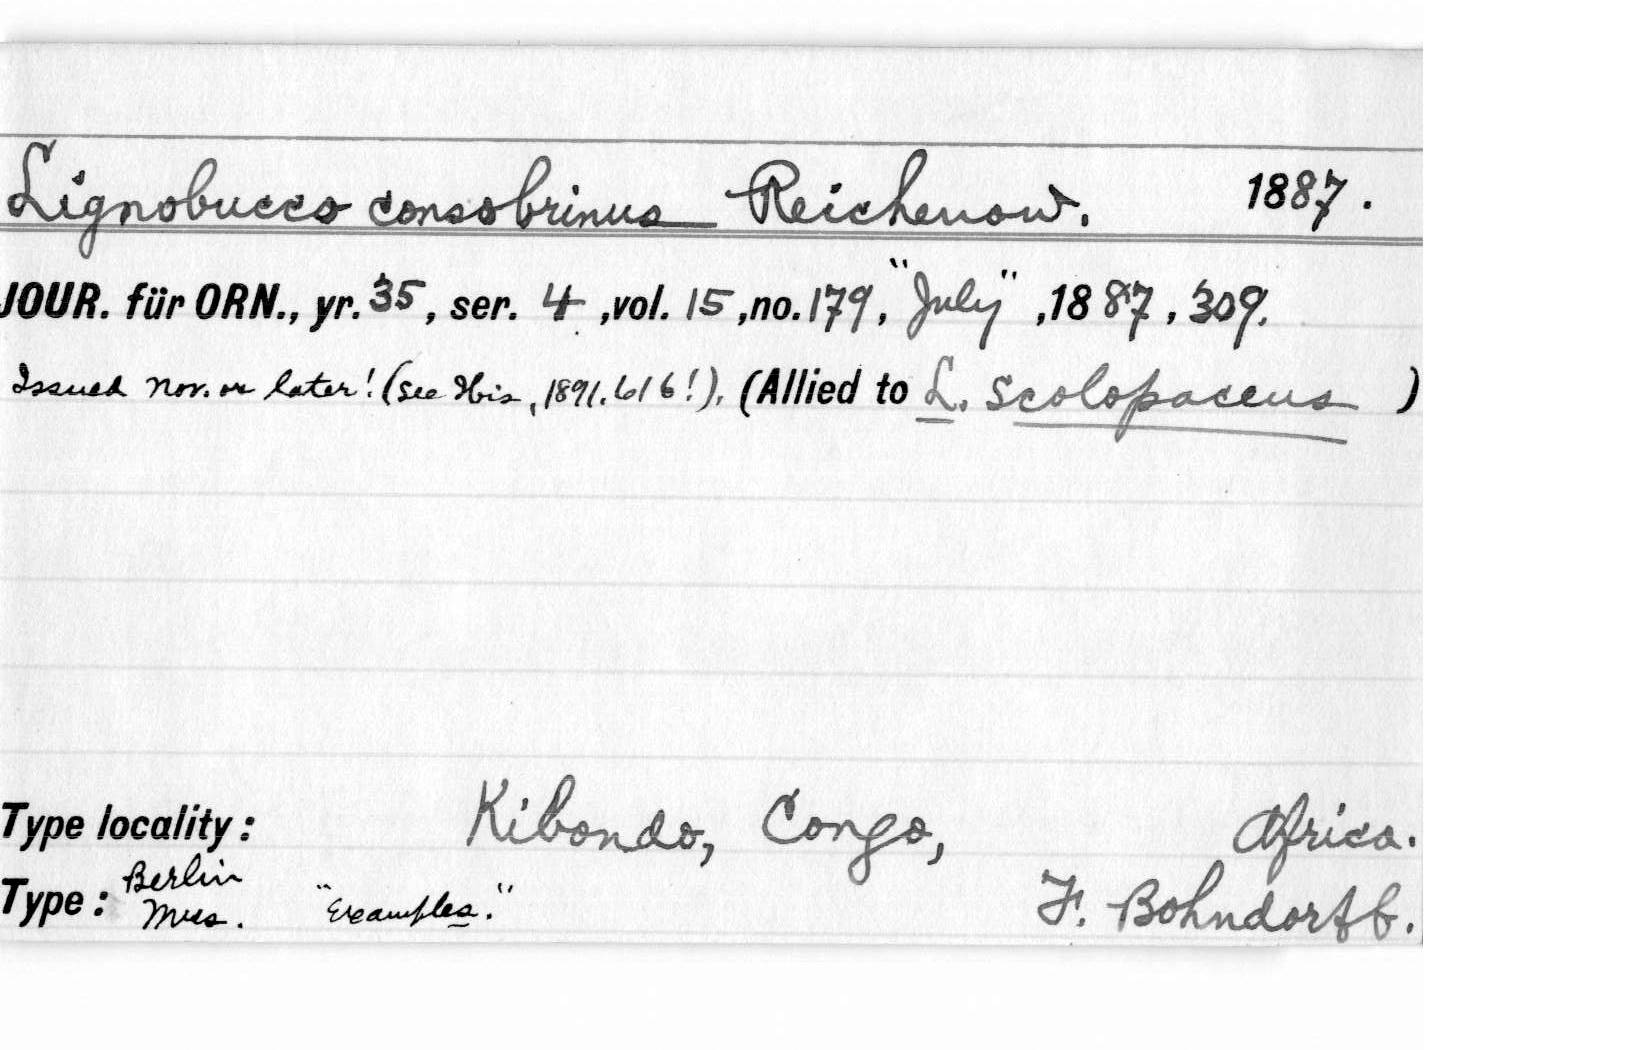 Lignobucco consobrinus Reichenow. 1887.
JOUR. für ORN., yr. 35, ser. 4, vol. 15, no. 179, "July", 1887, 309.
Issued Nov. or later! (see Ibis, 1891. 616!). (Allied to L. scolopaceus )
Type locality: Kibondo, Congo, Africa.
Type: Berlin Mus. "Examples." F. Bohndorff.